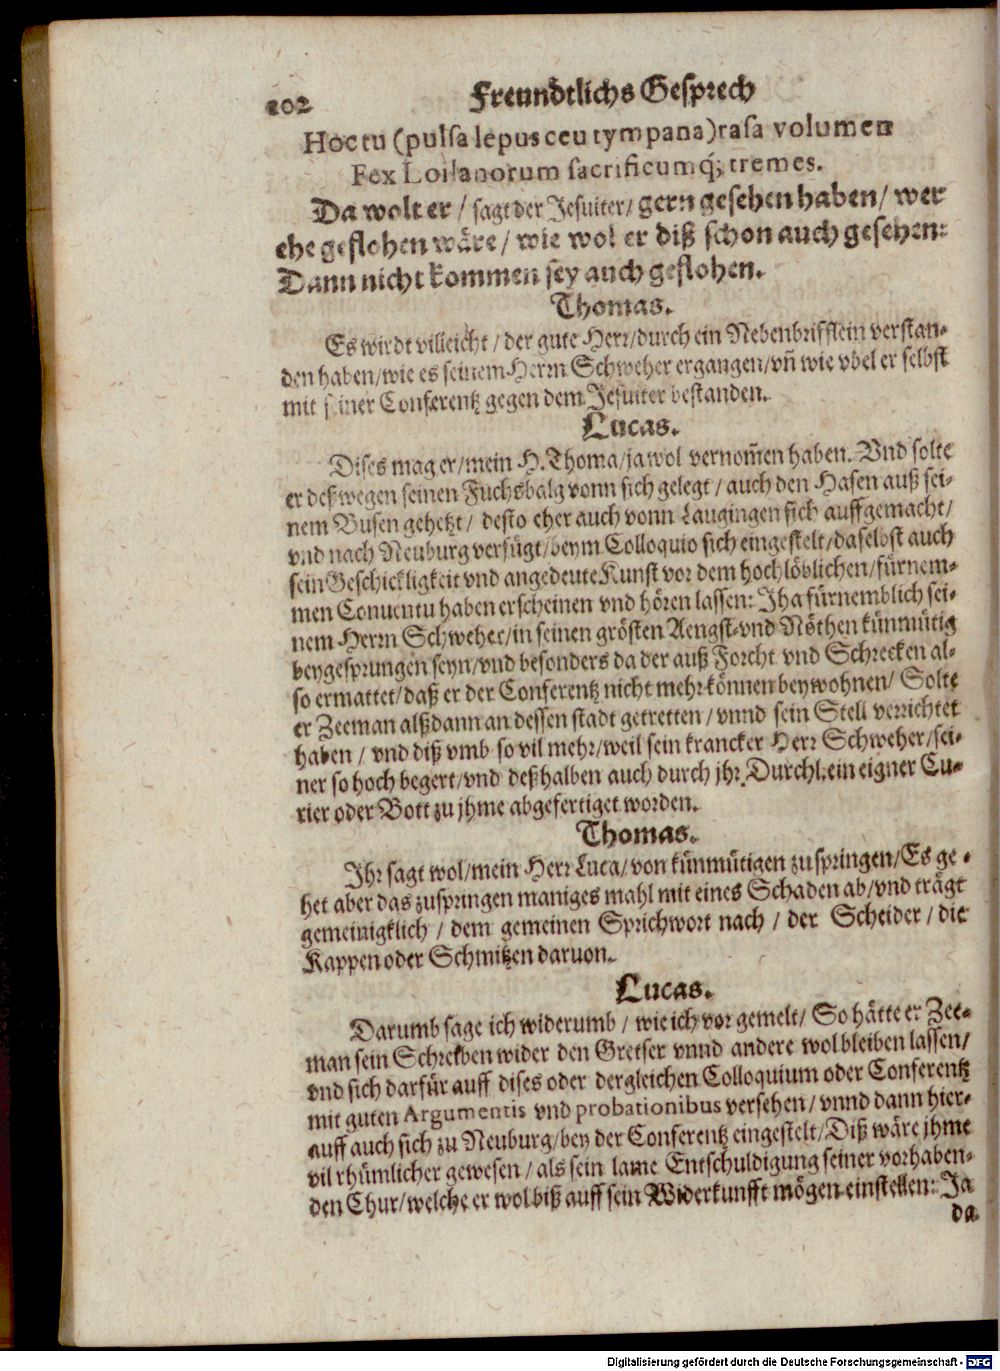 102 Freundtlichs Gesprech
Hoc tu (pulsa lepus ceu tympana) rasa volumen
Fex Loilanorum sacrificumq́; tremes.
Da wolt er / sagt der Jesuiter / gern gesehen haben / wer
ehe geflohen wäre / wie wol er diß schon auch gesehen:
Dann nicht kommen sey auch geflohen.
Thomas.
Es wirdt villeicht / der gute Herr / durch ein Nebenbrifflein verstan-
den haben / wie es seinem Herrn Schweher ergangen / vñ wie vbel er selbst
mit seiner Conferentz gegen dem Jesuiter bestanden.
Lucas.
Dises mag er / mein H. Thoma / ja wol vernom̃en haben. Vnd solte
er deßwegen seinen Fuchsbalg vonn sich gelegt / auch den Hasen auß sei-
nem Busen gehetzt / desto eher auch vonn Laugingen sich auffgemacht /
vnd nach Neuburg verfügt / beym Colloquio sich eingestelt / daselbst auch
sein Geschickligkeit vnd angedeute Kunst vor dem hochlöblichen / fürnem-
men Conuentu haben erscheinen vnd hören lassen: Jha fürnemblich sei-
nem Herrn Schweher / in seinen grösten Aengst- vnd Nöthen künmütig
beygesprungen seyn / vnd besonders da der auß Forcht vnd Schrecken al-
so ermattet / daß er der Conferentz nicht mehr können beywohnen / Solte
er Zeeman alßdann an dessen stadt getretten / vnnd sein Stell verrichtet
haben / vnd diß vmb so vil mehr / weil sein krancker Herr Schweher / sei-
ner so hoch begert / vnd deßhalben auch durch jhr Durchl. ein eigner Cu-
rier oder Bott zu jhme abgefertiget worden.
Thomas.
Jhr sagt wol / mein Herr Luca / von künmütigen zuspringen / Es ge-
het aber das zuspringen maniges mahl mit eines Schaden ab / vnd trägt
gemeinigklich / dem gemeinen Sprichwort nach / der Scheider / die
Kappen oder Schmitzen daruon.
Lucas.
Darumb sage ich widerumb / wie ich vor gemelt / So hätte er Zee-
man sein Schreiben wider den Gretser vnnd andere wol bleiben lassen /
vnd sich darfür auff dises oder dergleichen Colloquium oder Conferentz
mit guten Argumentis vnd probationibus versehen / vnnd dann hier-
auff auch sich zu Neuburg / bey der Conferentz eingestelt / Diß wäre jhme
vil rhümlicher gewesen / als sein lame Entschuldigung seiner vorhaben-
den Chur / welche er wol biß auff sein Widerkunfft mögen einstellen: Ja
da
Digitalisierung gefördert durch die Deutsche Forschungsgemeinschaft - DFG